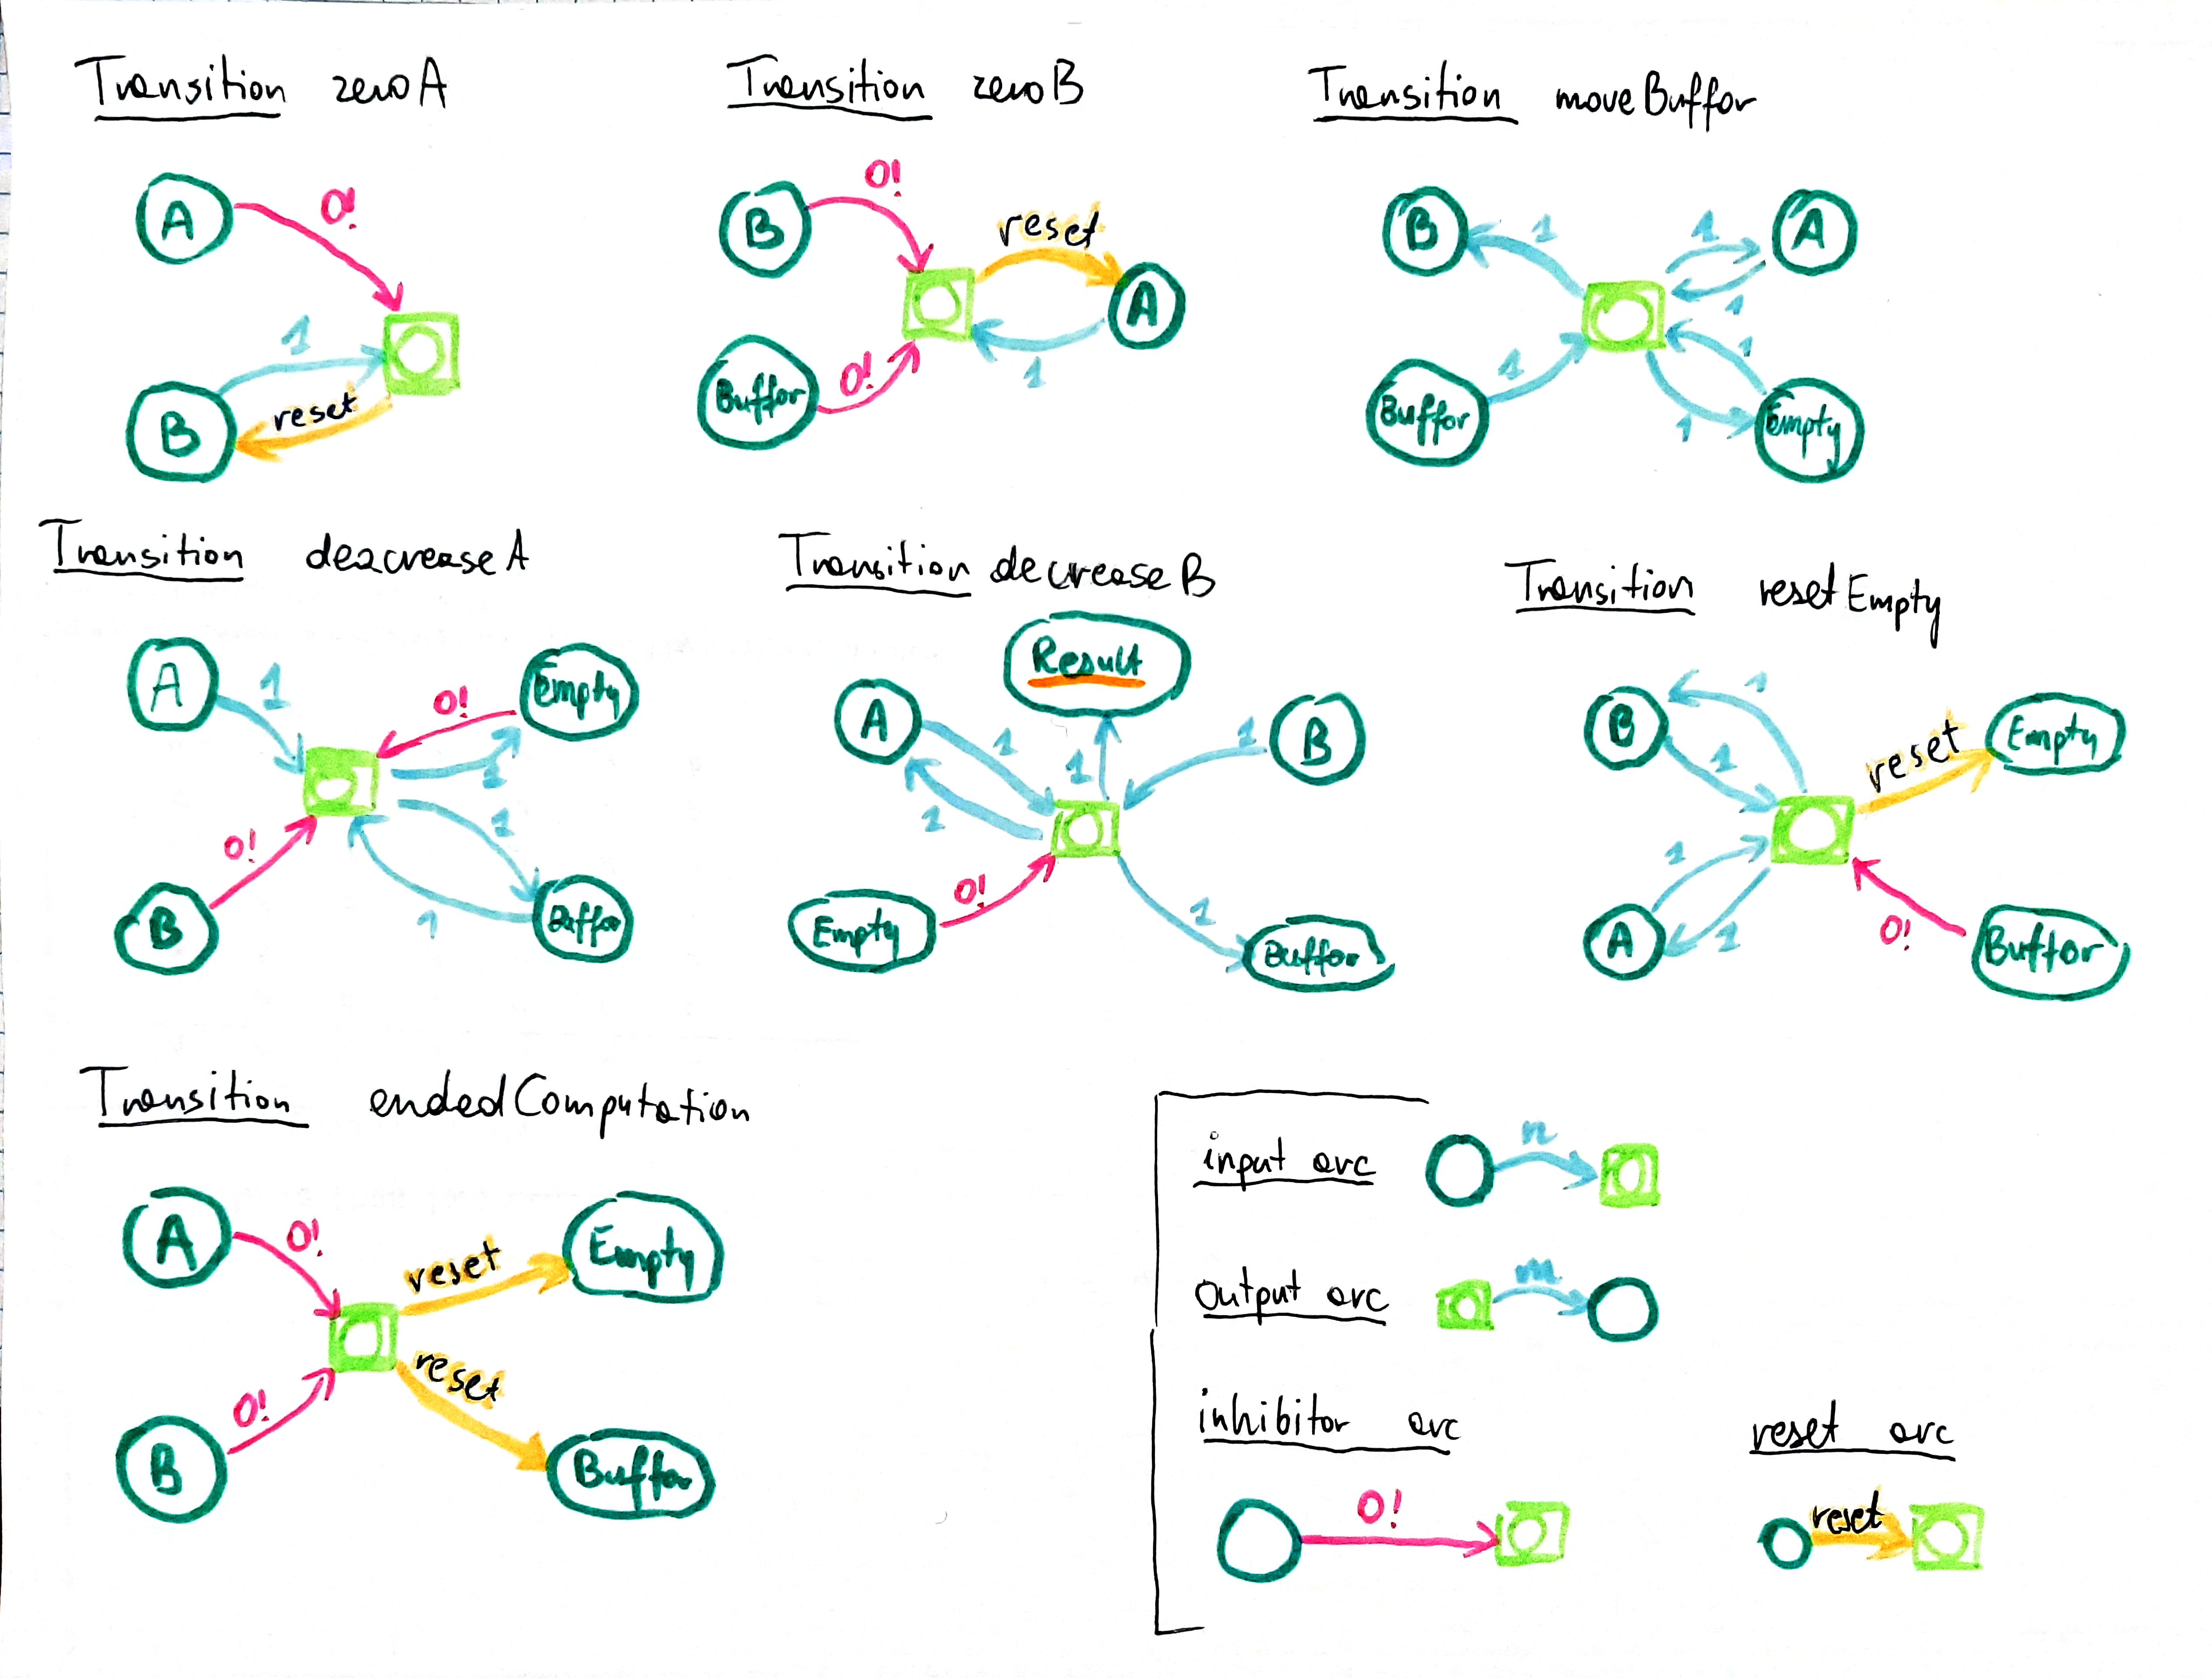 Transition zeroA
A
0!
1
reset
B
Transition zeroB
B
0!
reset
A
1
0!
Buffor
Transition moveBuffor
B
1
1
A
1
1
1
1
Buffor
Empty
Transition deacreaseA
A
1
0!
Empty
1
0!
1
1
B
Buffor
Transition decreaseB
Result
A
1
1
1
B
1
0!
1
Empty
Buffor
Transition resetEmpty
B
1
1
reset
Empty
1
1
A
0!
Buffor
Transition endedComputation
A
0!
reset
Empty
0!
reset
B
Buffor
input arc
n
output arc
m
inhibitor arc
0!
reset arc
reset